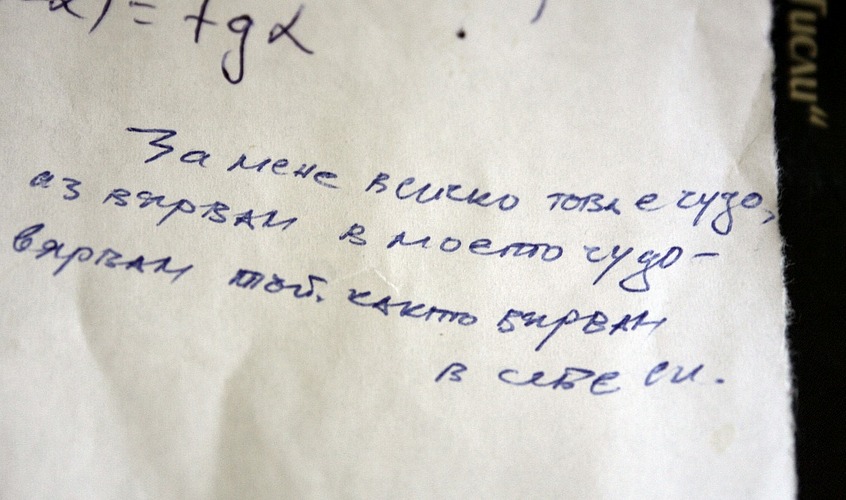 ) = tgα
За мене всичко това е чудо,
аз вярвам в моето чудо –
вярвам тъй, както вярвам
в себе си.
Тисли"